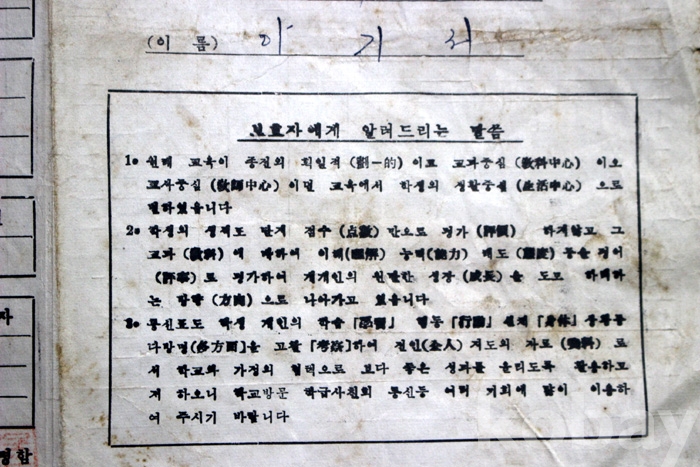 (이 름) 이 기 희
보호자에게 알려드리는 말씀
1. 원래 교육이 종전의 획일적 (劃一的) 이고 교과중심 (敎科中心) 이오
교사중심 (敎師中心) 이던 교육에서 학생의 생활중심 (生活中心) 으로
변하였읍니다
2. 학생의 성적도 단지 점수 (点數) 만으로 평가 (評價) 하지않고 그
교과 (敎科) 에 대하여 이해 (理解) 능력 (能力) 태도 (態度) 등을 평어
(評語) 로 평가하여 개개인의 원만한 성장 (成長) 을 도모 하려하
는 방향 (方向) 으로 나아가고 있읍니다
3. 통신표도 학생 개인의 학습 「學習」 행동 「行動」 신체 「身体」 등등을
다방면 (多方面) 을 고찰 「考察」하여 전인 (全人) 지도의 자료 (資料) 로
써 학교와 가정의 협력으로 보다 좋은 성과를 올리도록 활용하고
저 하오니 학교방문 학급사친회 통신등 여러 기회에 많이 이용하
여 주시기 바랍니다
자
명함
kobay